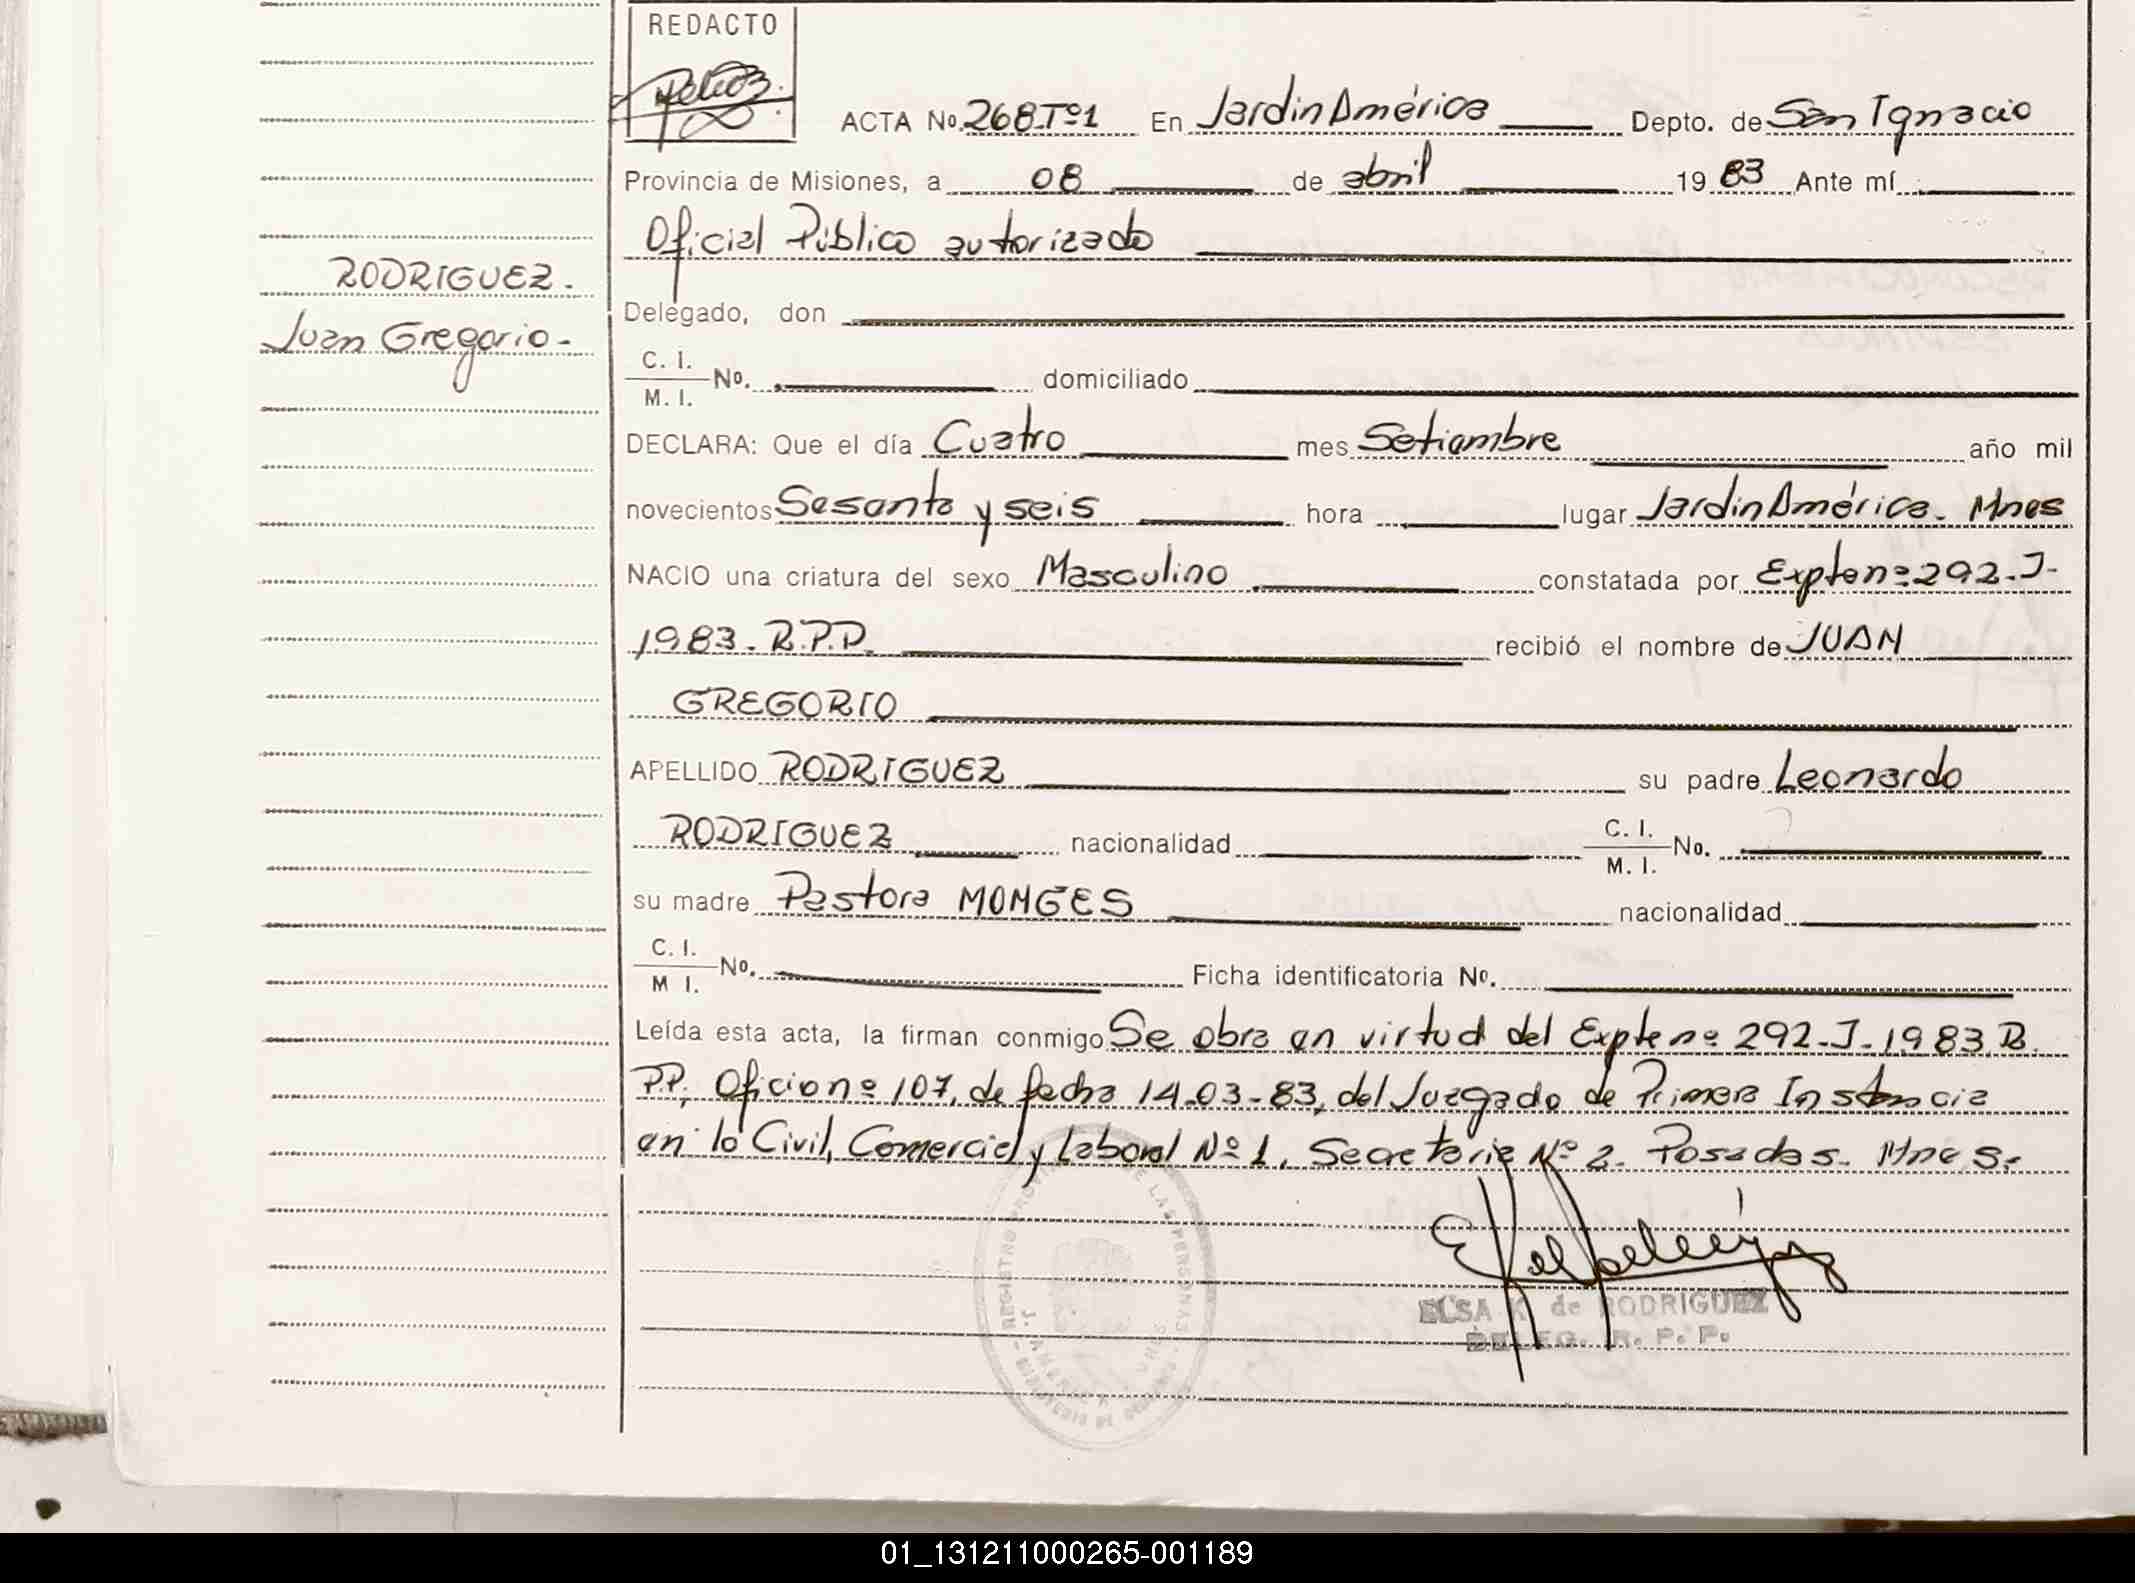 REDACTO
ACTA No. 268.Tº1 En Jardin América Depto. de San Ignacio
Provincia de Misiones, a 08 de abril 1983 Ante mí
Oficial Público autorizado
RODRIGUEZ.
Delegado, don
Juan Gregorio-
C. I.
M. I. No. domiciliado
DECLARA: Que el día Cuatro mes Setiembre año mil
novecientos Sesenta y seis hora lugar Jardin América. Mnes
NACIO una criatura del sexo Masculino constatada por Expte nº 292.J-
1983. R.P.P. recibió el nombre de JUAN
GREGORIO
APELLIDO RODRIGUEZ su padre Leonardo
RODRIGUEZ nacionalidad C. I.
M. I. No.
su madre Pastora MONGES nacionalidad
C. I.
M I. No. Ficha identificatoria No.
Leída esta acta, la firman conmigo Se obra en virtud del Expte nº 292-J-1983.R.
P.P. Oficio nº 107, de fecha 14-03-83, del Juzgado de Primera Instancia
en lo Civil, Comercial y Laboral Nº 1. Secretaria Nº 2. Posadas. Mnes.
ELSA K. de RODRIGUEZ
DELEG. R. P. P.
01_131211000265-001189